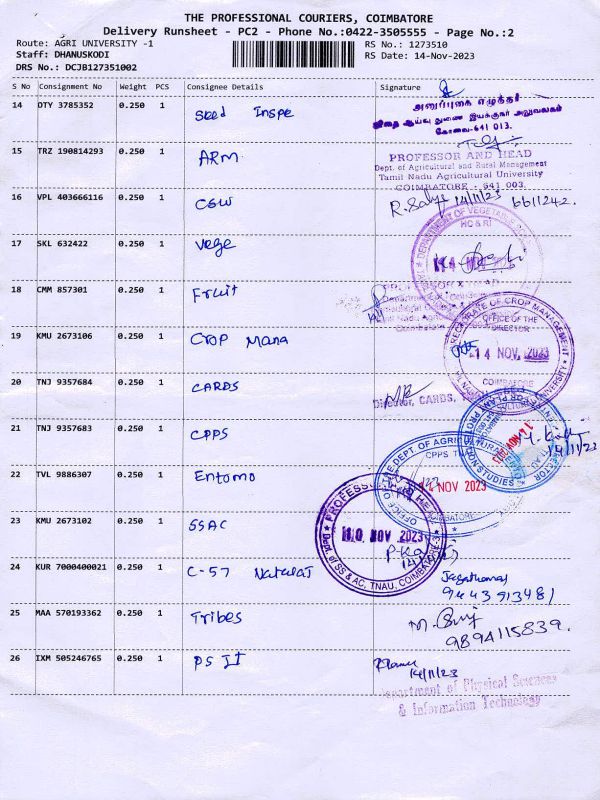 THE PROFESSIONAL COURIERS, COIMBATORE
Delivery Runsheet - PC2 - Phone No.:0422-3505555 - Page No.:2
Route: AGRI UNIVERSITY -1
RS No.: 1273510
Staff: DHANUSKODI
RS Date: 14-Nov-2023
DRS No.: DCJB127351002
S No Consignment No Weight PCS Consignee Details Signature
14 OTY 3785352 0.250 1 Seed Inspe
அனுப்புகை எழுத்தர்
விதை ஆய்வு துணை இயக்குநர் அலுவலகம்
கோவை-641 013.
15 TRZ 190814293 0.250 1 ARM
PROFESSOR AND HEAD
Dept. of Agricultural and Rural Management
Tamil Nadu Agricultural University
COIMBATORE - 641 003.
16 VPL 403666116 0.250 1 CSW
14/11/23 6611242.
17 SKL 632422 0.250 1 Vege
DEPARTMENT OF VEGETABLE
HC & RI
18 CMM 857301 0.250 1 Fruit
19 KMU 2673106 0.250 1 Crop Mana
DIRECTORATE OF CROP MANAGEMENT
OFFICE OF THE
DIRECTOR
14 NOV, 2023
COIMBATORE
20 TNJ 9357684 0.250 1 CARDS
Director, CARDS,
21 TNJ 9357683 0.250 1 CPPS
14 NOV 2023
14/11/23
22 TVL 9886307 0.250 1 Entomo
14 NOV 2023
23 KMU 2673102 0.250 1 SSAC
PROFESSOR & HEAD
NOV 2023
Dept. of SS & AC, TNAU, COIMBATORE-3
24 KUR 7000400021 0.250 1 C-57 Natural
9443513481
25 MAA 570193362 0.250 1 Tribes
9894115839.
26 IXM 505246765 0.250 1 PS IT
14/11/23
Department of Physical Sciences
& Information Technology